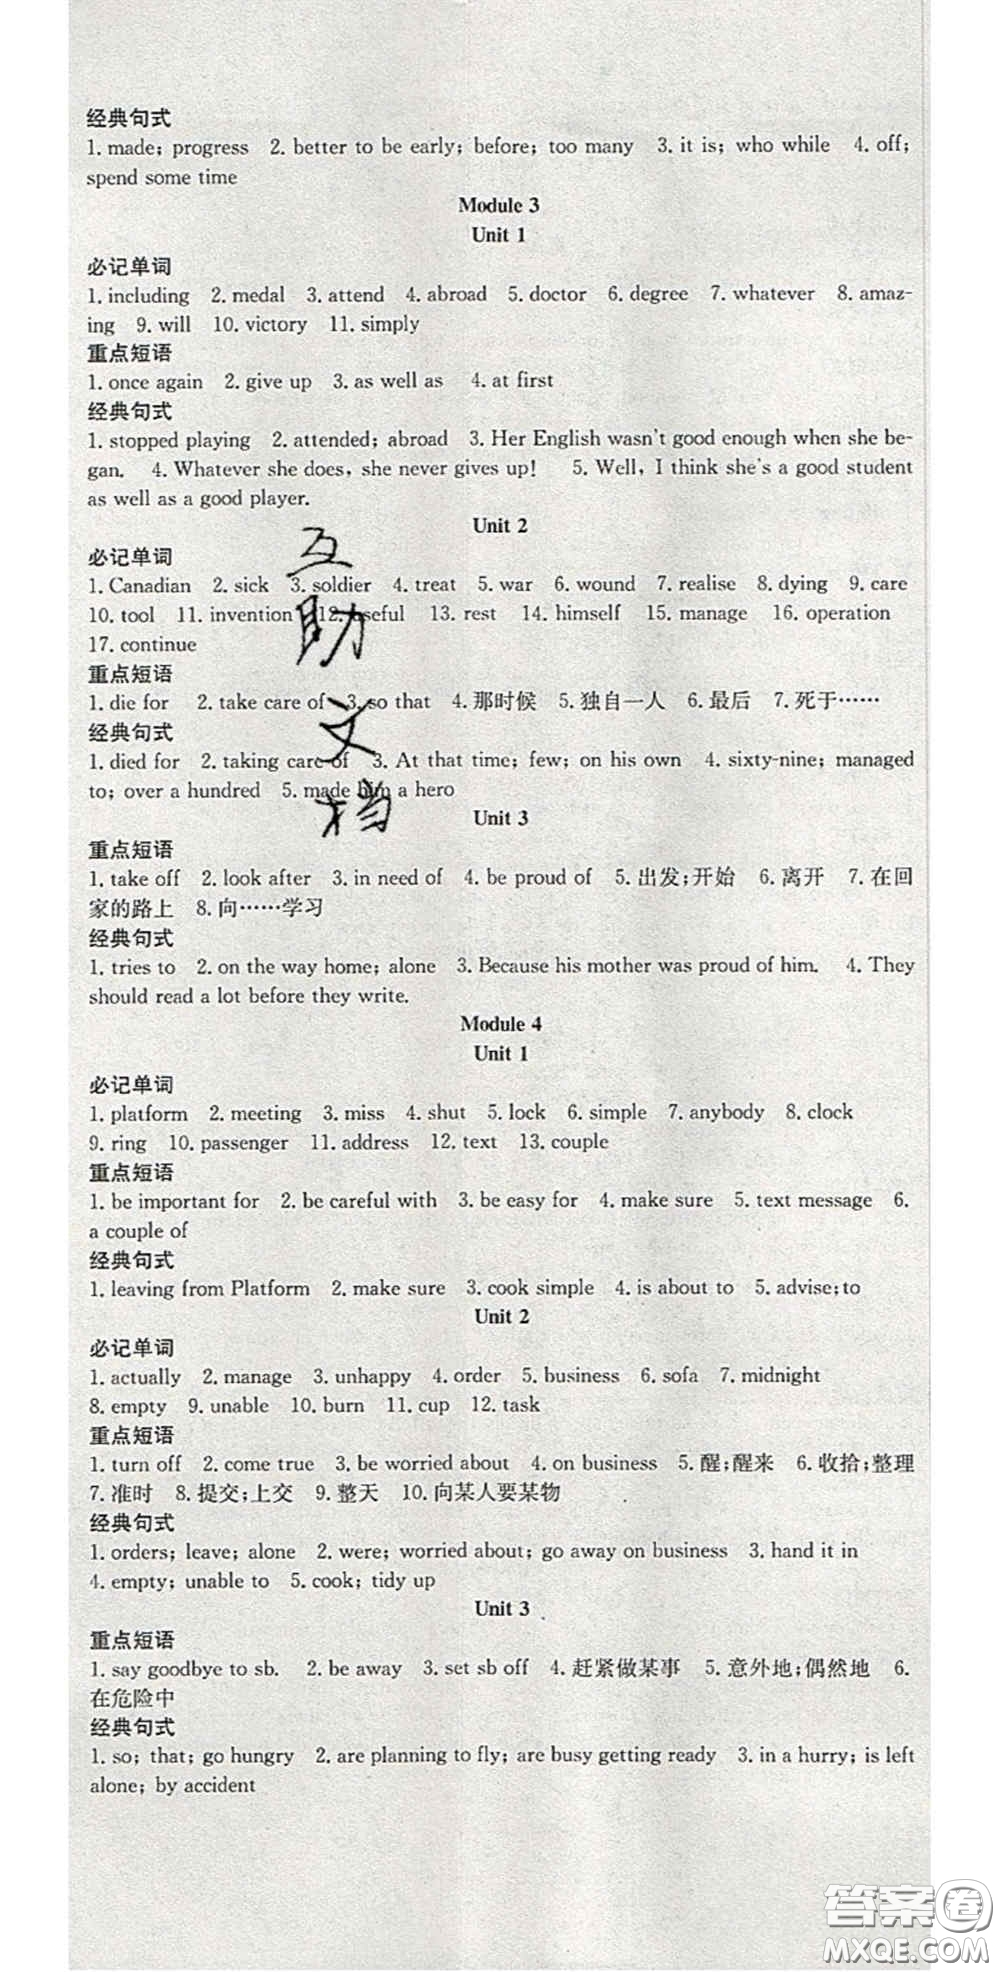 经典句式
1. made; progress 2. better to be early; before; too many 3. it is; who while 4. off;
spend some time
Module 3
Unit 1
必记单词
1. including 2. medal 3. attend 4. abroad 5. doctor 6. degree 7. whatever 8. amaz-
ing 9. will 10. victory 11. simply
重点短语
1. once again 2. give up 3. as well as 4. at first
经典句式
1. stopped playing 2. attended; abroad 3. Her English wasn't good enough when she be-
gan. 4. Whatever she does, she never gives up! 5. Well, I think she's a good student
as well as a good player.
Unit 2
必记单词
1. Canadian 2. sick 3. soldier 4. treat 5. war 6. wound 7. realise 8. dying 9. care
10. tool 11. invention 12. useful 13. rest 14. himself 15. manage 16. operation
17. continue
重点短语
1. die for 2. take care of 3. so that 4. 那时候 5. 独自一人 6. 最后 7. 死于……
经典句式
1. died for 2. taking care of 3. At that time; few; on his own 4. sixty-nine; managed
to; over a hundred 5. made him a hero
互助文档
Unit 3
重点短语
1. take off 2. look after 3. in need of 4. be proud of 5. 出发;开始 6. 离开 7. 在回
家的路上 8. 向……学习
经典句式
1. tries to 2. on the way home; alone 3. Because his mother was proud of him. 4. They
should read a lot before they write.
Module 4
Unit 1
必记单词
1. platform 2. meeting 3. miss 4. shut 5. lock 6. simple 7. anybody 8. clock
9. ring 10. passenger 11. address 12. text 13. couple
重点短语
1. be important for 2. be careful with 3. be easy for 4. make sure 5. text message 6.
a couple of
经典句式
1. leaving from Platform 2. make sure 3. cook simple 4. is about to 5. advise;to
Unit 2
必记单词
1. actually 2. manage 3. unhappy 4. order 5. business 6. sofa 7. midnight
8. empty 9. unable 10. burn 11. cup 12. task
重点短语
1. turn off 2. come true 3. be worried about 4. on business 5. 醒;醒来 6. 收拾;整理
7. 准时 8. 提交;上交 9. 整天 10. 向某人要某物
经典句式
1. orders; leave; alone 2. were; worried about; go away on business 3. hand it in
4. empty; unable to 5. cook; tidy up
Unit 3
重点短语
1. say goodbye to sb. 2. be away 3. set sb off 4. 赶紧做某事 5. 意外地;偶然地 6.
在危险中
经典句式
1. so; that; go hungry 2. are planning to fly; are busy getting ready 3. in a hurry; is left
alone; by accident
答案圈
MXQE.COM